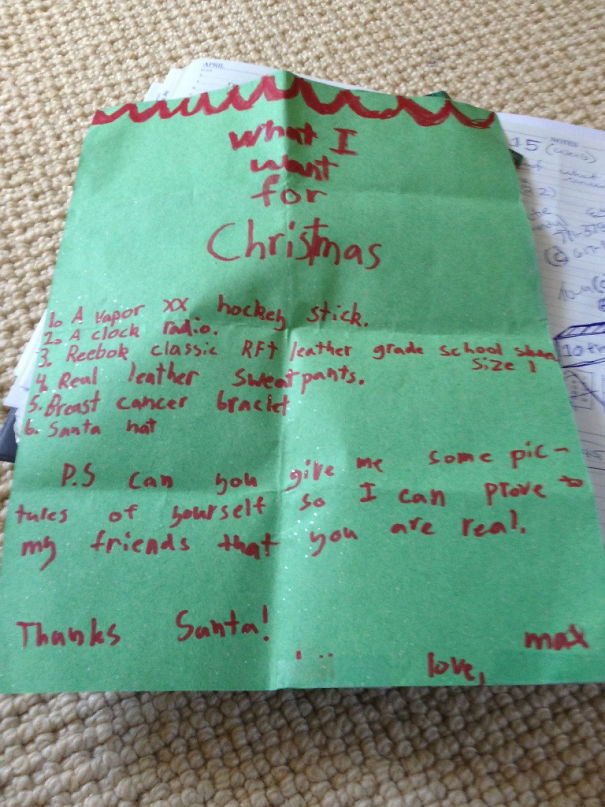 What I
want
for
Christmas
1. A vapor XX hockey stick.
2. A clock radio.
3. Reebok classic RFT leather grade school shoes
Size 1
4. Real leather sweatpants.
5. Breast cancer braclet
6. Santa hat
P.S can you give me some pic-
tures of yourself so I can prove to
my friends that you are real.
Thanks Santa!
love, max
APRIL
NOTES
15